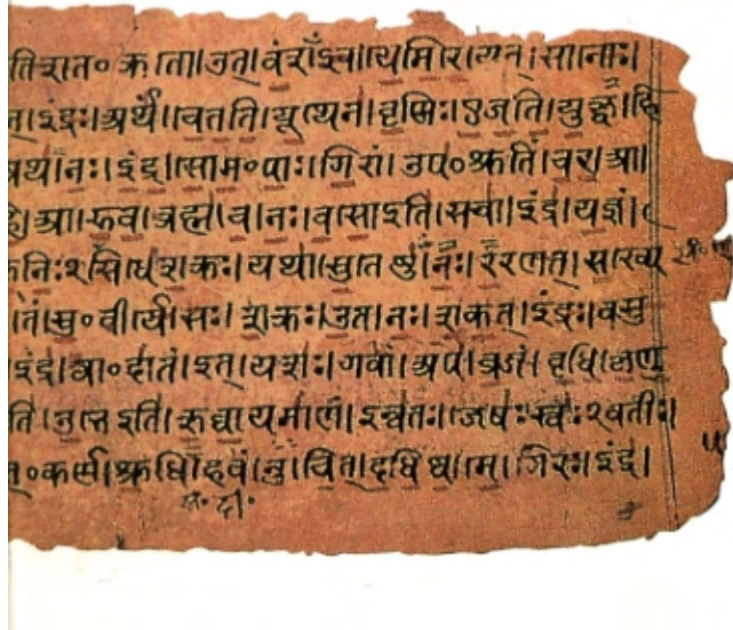 ति शत॰क्रतो। उत्। वंशंऽइव। येमिरे। यत्। सानोः।
त्। इंद्रः। अर्थं। चेतति। यूथेन। वृष्णिः। एजति। युक्ष्व। हि
अथ। नः। इंद्र। सोम॰पाः। गिरां। उप॰श्रुतिं। चर। आ।
आ। रुव। ब्रह्म। च। नः। वसो इति। सचा। इंद्र। यज्ञं।
निः॰सिधे। शक्रः। यथा। सुतेषु। नः। ररणत्। सख्ये
तं। सु॰वीर्ये। सः। शक्रः। उत। नः। शकत्। इंद्रः। वसु
इंद्र। त्वा॰दातं। इत्। यशः। गवां। अप। व्रजं। वृधि। कृणु
ति। उभे इति। ऋघायमाणं। इन्वतः। जेषः। स्वः॰वतीः।
त्॰कर्ण। श्रुधि। हवं। नु। चित्। दधिष्व। मे। गिरः। इंद्र।